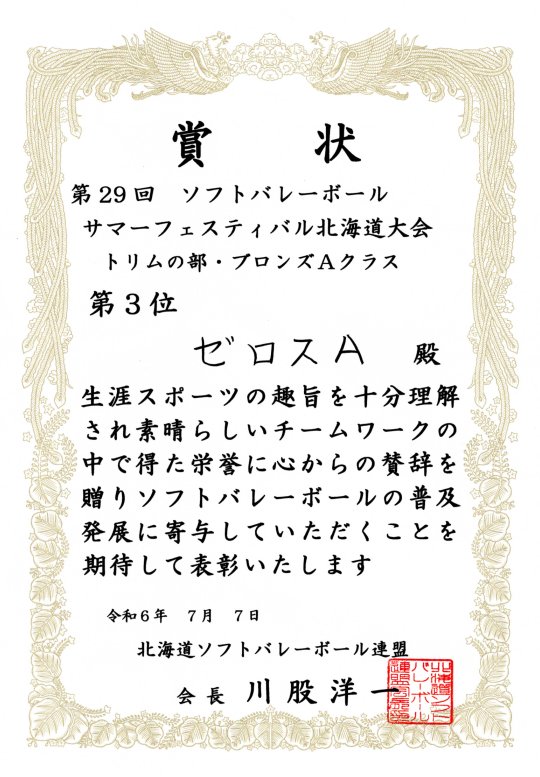 賞状
第29回 ソフトバレーボール
サマーフェスティバル北海道大会
トリムの部・ブロンズAクラス
第3位
ゼロスA 殿
生涯スポーツの趣旨を十分理解
され素晴らしいチームワークの
中で得た栄誉に心からの賛辞を
贈りソフトバレーボールの普及
発展に寄与していただくことを
期待して表彰いたします
令和6年 7月 7日
北海道ソフトバレーボール連盟
会長 川股洋一